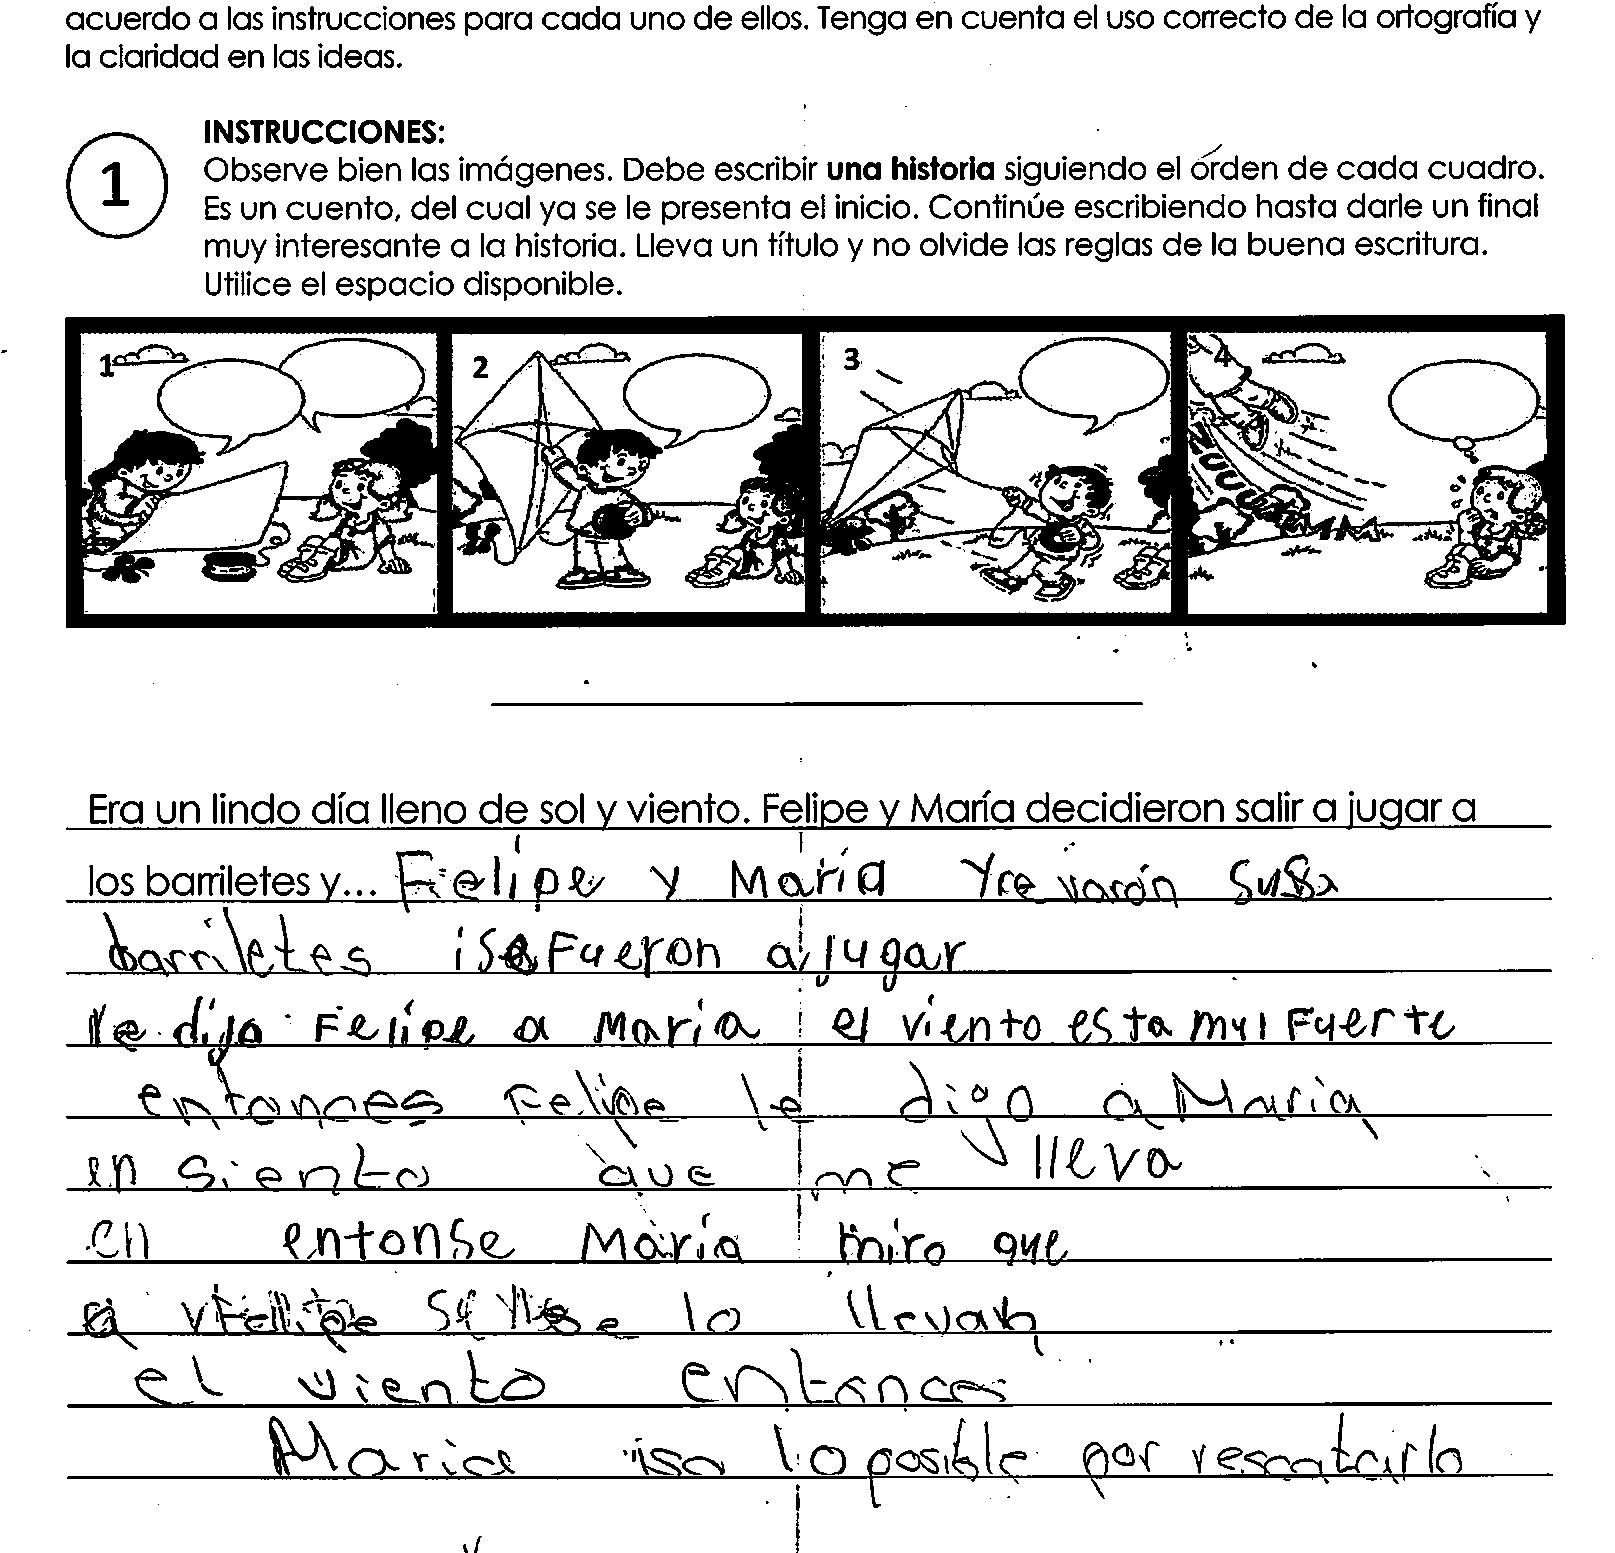 acuerdo a las instrucciones para cada uno de ellos. Tenga en cuenta el uso correcto de la ortografía y
la claridad en las ideas.
1
INSTRUCCIONES:
Observe bien las imágenes. Debe escribir una historia siguiendo el órden de cada cuadro.
Es un cuento, del cual ya se le presenta el inicio. Continúe escribiendo hasta darle un final
muy interesante a la historia. Lleva un título y no olvide las reglas de la buena escritura.
Utilice el espacio disponible.
1 2 3 4
Era un lindo día lleno de sol y viento. Felipe y María decidieron salir a jugar a
los barriletes y... Felipe y María
barriletes ise Fueron a jugar
le dijo Felipe a María el viento esta mui Fuerte
entonces Felipe le digo a Maria
en siento que me lleva
en entonse María miro que
a Felipe se lo llevan
el viento entonces
Maria iso lo posible por rescatarlo